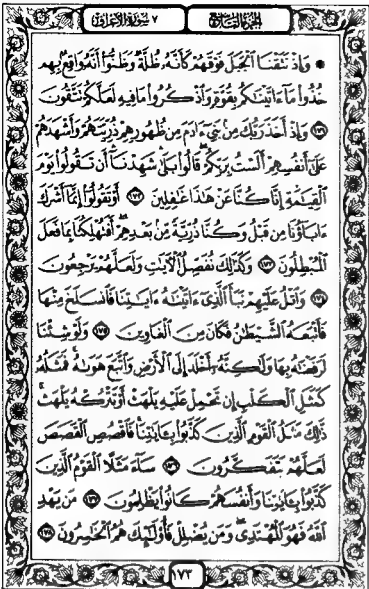 الجزء التاسع ٧ سورة الأعراف
۞ وَإِذْ نَتَقْنَا ٱلْجَبَلَ فَوْقَهُمْ كَأَنَّهُۥ ظُلَّةٌ وَظَنُّوٓا۟ أَنَّهُۥ وَاقِعٌۢ بِهِمْ
خُذُوا۟ مَآ ءَاتَيْنَٰكُم بِقُوَّةٍ وَٱذْكُرُوا۟ مَا فِيهِ لَعَلَّكُمْ تَتَّقُونَ
﴿١٧١﴾ وَإِذْ أَخَذَ رَبُّكَ مِنۢ بَنِىٓ ءَادَمَ مِن ظُهُورِهِمْ ذُرِّيَّتَهُمْ وَأَشْهَدَهُمْ
عَلَىٰٓ أَنفُسِهِمْ أَلَسْتُ بِرَبِّكُمْ ۖ قَالُوا۟ بَلَىٰ ۛ شَهِدْنَآ ۛ أَن تَقُولُوا۟ يَوْمَ
ٱلْقِيَٰمَةِ إِنَّا كُنَّا عَنْ هَٰذَا غَٰفِلِينَ ﴿١٧٢﴾ أَوْ تَقُولُوٓا۟ إِنَّمَآ أَشْرَكَ
ءَابَآؤُنَا مِن قَبْلُ وَكُنَّا ذُرِّيَّةً مِّنۢ بَعْدِهِمْ ۖ أَفَتُهْلِكُنَا بِمَا فَعَلَ
ٱلْمُبْطِلُونَ ﴿١٧٣﴾ وَكَذَٰلِكَ نُفَصِّلُ ٱلْءَايَٰتِ وَلَعَلَّهُمْ يَرْجِعُونَ
﴿١٧٤﴾ وَٱتْلُ عَلَيْهِمْ نَبَأَ ٱلَّذِىٓ ءَاتَيْنَٰهُ ءَايَٰتِنَا فَٱنسَلَخَ مِنْهَا
فَأَتْبَعَهُ ٱلشَّيْطَٰنُ فَكَانَ مِنَ ٱلْغَاوِينَ ﴿١٧٥﴾ وَلَوْ شِئْنَا
لَرَفَعْنَٰهُ بِهَا وَلَٰكِنَّهُۥٓ أَخْلَدَ إِلَى ٱلْأَرْضِ وَٱتَّبَعَ هَوَىٰهُ ۚ فَمَثَلُهُۥ
كَمَثَلِ ٱلْكَلْبِ إِن تَحْمِلْ عَلَيْهِ يَلْهَثْ أَوْ تَتْرُكْهُ يَلْهَث ۚ
ذَّٰلِكَ مَثَلُ ٱلْقَوْمِ ٱلَّذِينَ كَذَّبُوا۟ بِـَٔايَٰتِنَا ۚ فَٱقْصُصِ ٱلْقَصَصَ
لَعَلَّهُمْ يَتَفَكَّرُونَ ﴿١٧٦﴾ سَآءَ مَثَلًا ٱلْقَوْمُ ٱلَّذِينَ
كَذَّبُوا۟ بِـَٔايَٰتِنَا وَأَنفُسَهُمْ كَانُوا۟ يَظْلِمُونَ ﴿١٧٧﴾ مَن يَهْدِ
ٱللَّهُ فَهُوَ ٱلْمُهْتَدِى ۖ وَمَن يُضْلِلْ فَأُو۟لَٰٓئِكَ هُمُ ٱلْخَٰسِرُونَ ﴿١٧٨﴾
١٧٣